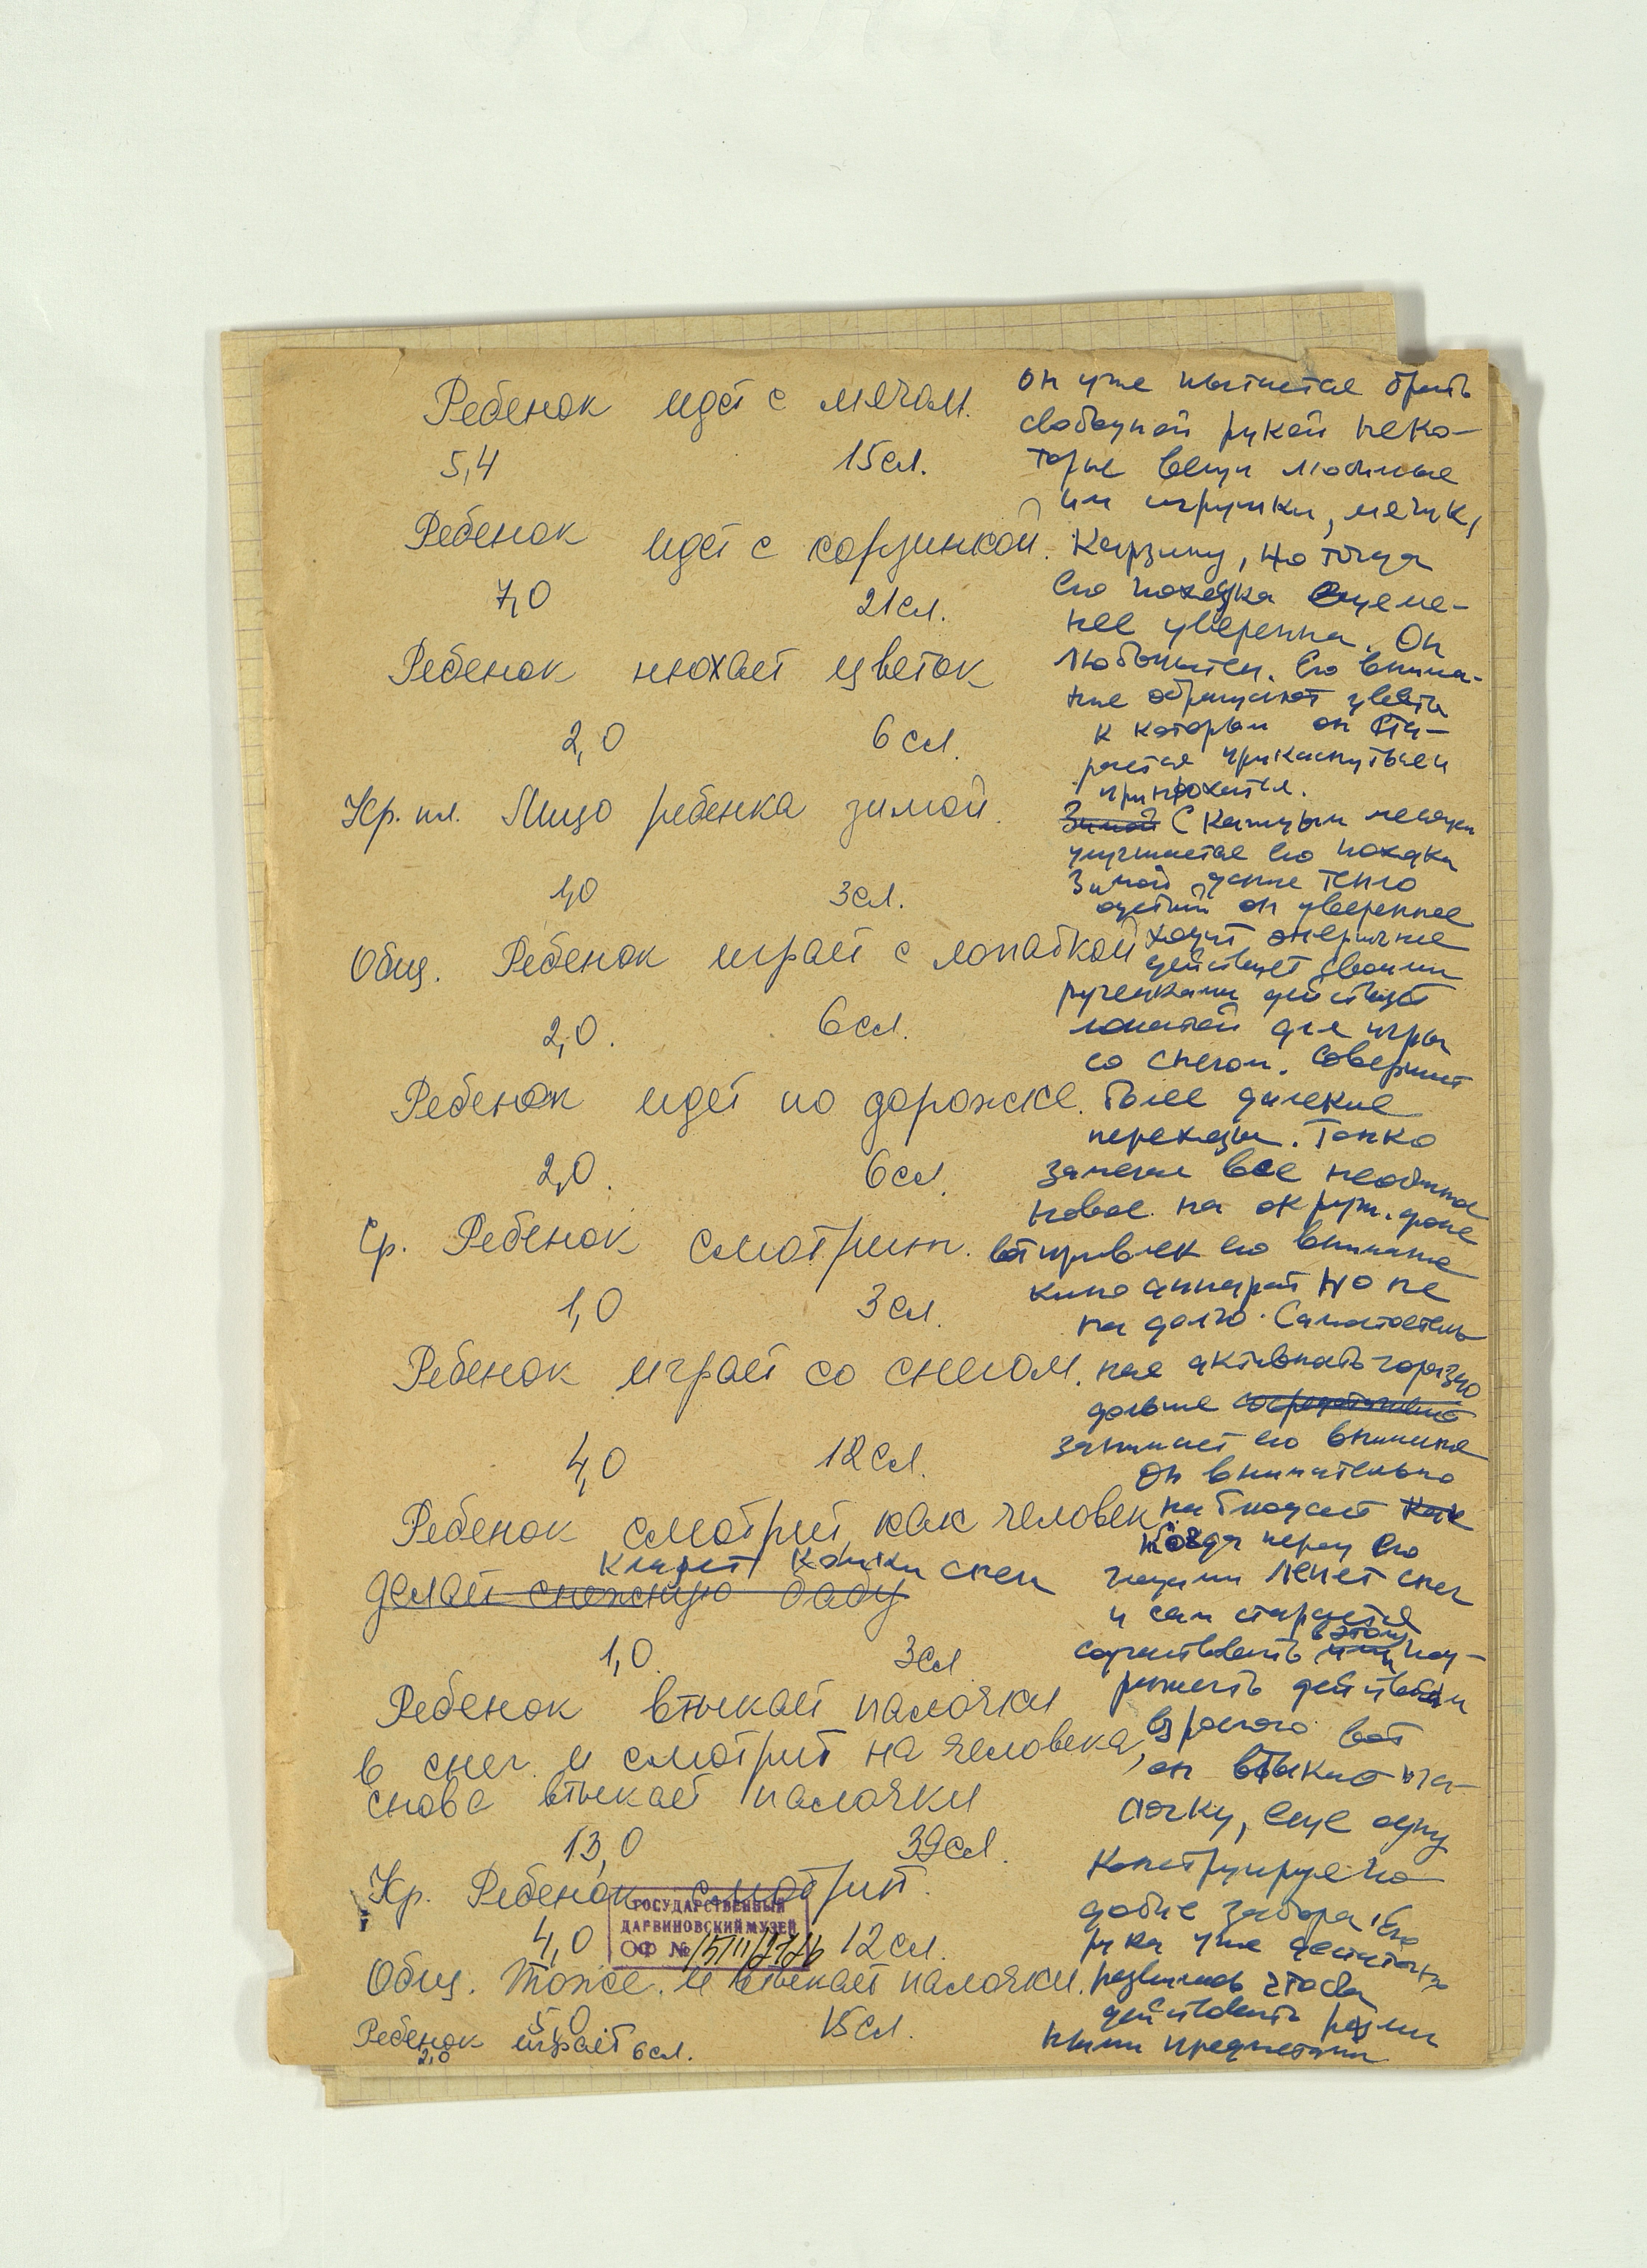 Ребенок идет с мячом.
5,4 15 сл.
Ребенок идет с корзинкой.
7,0 21 сл.
Ребенок нюхает цветок
2,0 6 сл.
Кр. пл. Лицо ребенка зимой.
1,0 3 сл.
Общ. Ребенок играет с лопаткой
2,0. 6 сл.
Ребенок идет по дорожке.
2,0. 6 сл.
Ср. Ребенок смотрит.
1,0 3 сл.
Ребенок играет со снегом.
4,0 12 сл.
Ребенок смотрит как человек
делает снежную бабу
кладет комки снега
1,0. 3 сл
Ребенок втыкает палочки
в снег и смотрит на человека,
снова втыкает палочки
13,0 39 сл.
Кр. Ребенок смотрит.
4,0 12 сл.
Общ. Тоже. и втыкает палочки.
5,0 15 сл.
Ребенок играет
2,0 6 сл.
ГОСУДАРСТВЕННЫЙ
ДАРВИНОВСКИЙ МУЗЕЙ
ОФ №
он уже пытается брать
свободной рукой неко-
торые вещи любимые
им игрушки, мячик,
корзину, но тогда
его походка еще ме-
нее уверенна. Он
любопытен. Его внима-
ние обращают цветы
к которым он ста-
рается прикоснуться и
принюхаться.
Зимой С каждым месяцем
улучшается его походка
Зимой даже тепло
одетый он увереннее
ходит энергичнее
действует своими
рученками действует
лопатой для игры
со снегом. Совершает
более далекие
переходы. Тонко
замечая все необычное
новое на окруж. фоне
вот привлек его внимание
кино аппарат но не
на долго. Самостоятель
ная активность гораздо
дольше
занимает его внимание
Он внимательно
наблюдает как
когда перед его
глазами лепят снег
и сам старается
соучаствовать в этом под-
ражать действиям
взрослого вот
он воткнул па-
лочку, еще одну
конструируя по-
добие забора. Его
рука уже достаточно
развилась чтобы
действовать различ
ными предметами